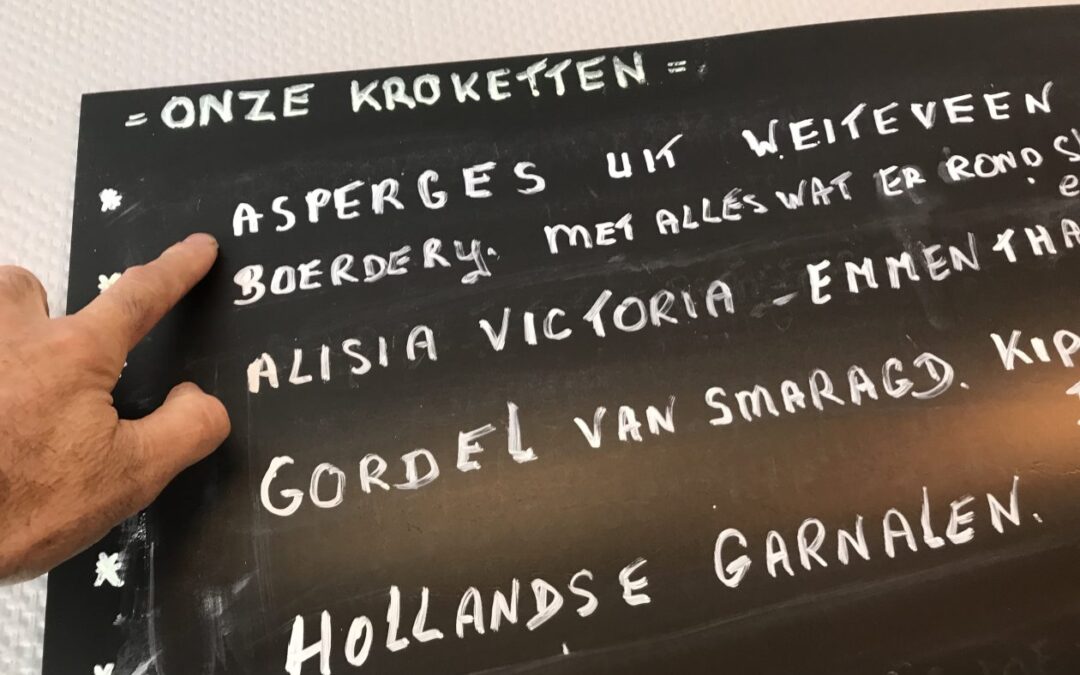 = ONZE KROKETTEN =
* ASPERGES UIT WEITEVEEN
BOERDERY. MET ALLES WAT ER ROND
* ALISIA VICTORIA - EMMENTHA
GORDEL VAN SMARAGD. KIP
* HOLLANDSE GARNALEN.